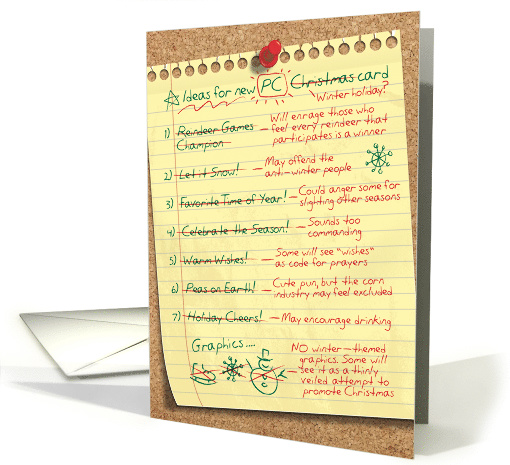 Ideas for new PC Christmas card
Winter holiday?
1) Reindeer Games Champion – Will enrage those who
feel every reindeer that
participates is a winner
2) Let it Snow! – May offend the
anti-winter people
3) Favorite Time of Year! – Could anger some for
slighting other seasons
4) Celebrate the Season! – Sounds too
commanding
5) Warm Wishes! – Some will see "wishes"
as code for prayers
6) Peas on Earth! – Cute pun, but the corn
industry may feel excluded
7) Holiday Cheers! – May encourage drinking
Graphics....
NO winter-themed
graphics. Some will
see it as a thinly
veiled attempt to
promote Christmas